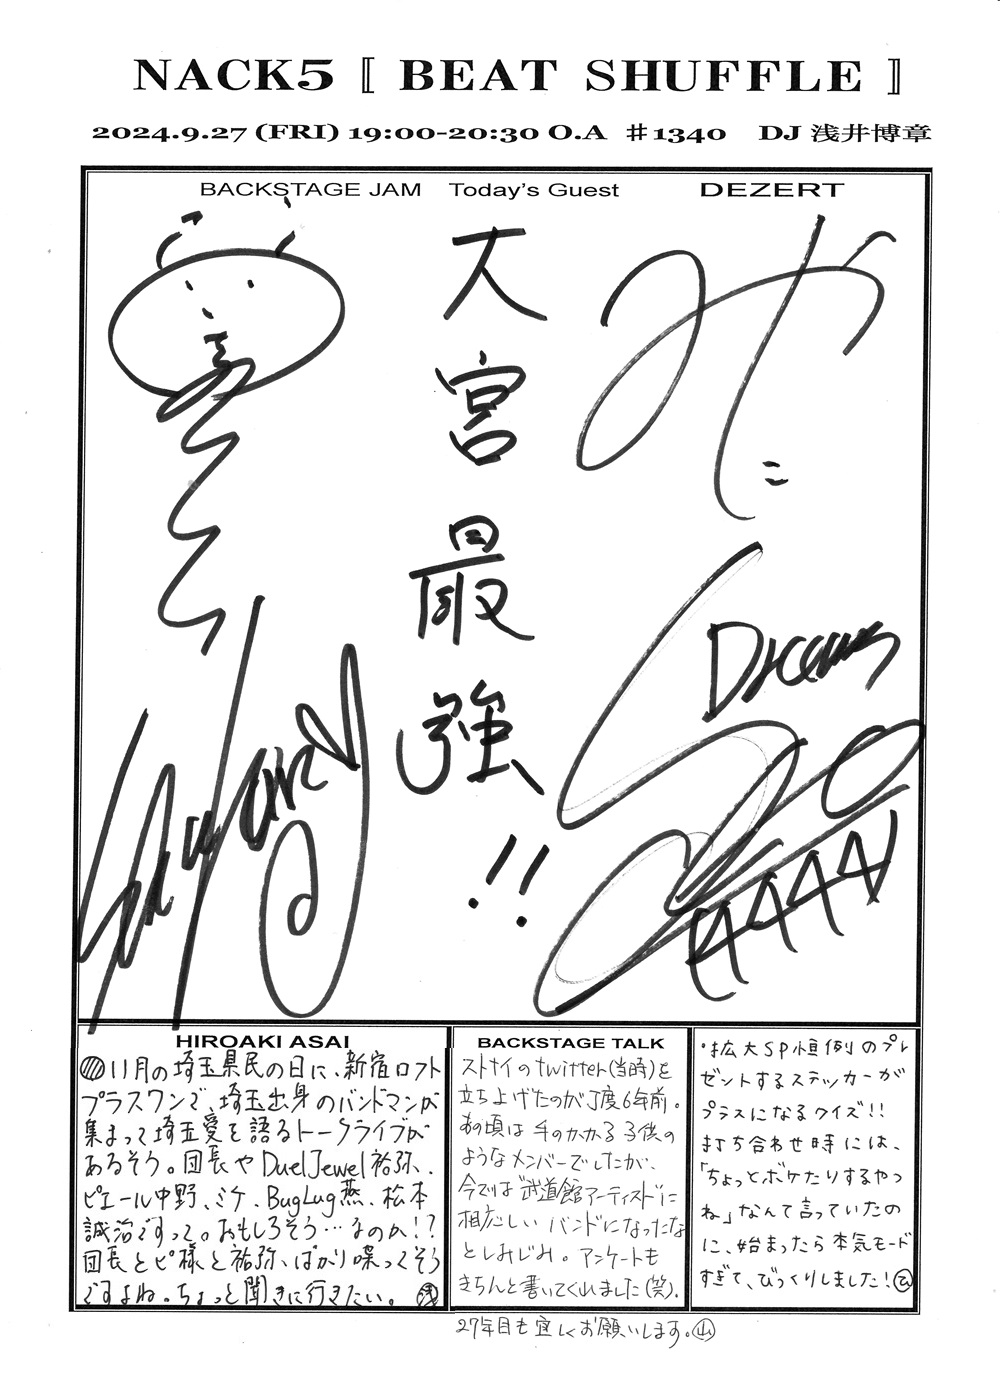 NACK5 〚 BEAT SHUFFLE 〛
2024.9.27 (FRI) 19:00-20:30 O.A ♯1340 DJ 浅井博章
BACKSTAGE JAM Today's Guest DEZERT
大宮最強!!
みやこ
Dreams
HIROAKI ASAI
11月の埼玉県民の日に、新宿ロフト
プラスワンで、埼玉出身のバンドマンが
集まって埼玉愛を語るトークライブが
あるそう。団長やDuelJewel祐弥、
ピエール中野、ミケ、BugLug燕、松本
誠治ですって。おもしろそう…なのか!?
団長とピ様と祐弥、ばかり喋ってそう
ですよね。ちょっと聞きに行きたい。 浅
BACKSTAGE TALK
ストナイのtwitter(当時)を
立ち上げたのが丁度6年前。
あの頃は手のかかる子供の
ようなメンバーでしたが、
今では"武道館アーティスト"に
相応しいバンドになったな
としみじみ。アンケートも
きちんと書いてくれました(笑)。
27年目も宜しくお願いします。山
・拡大SP恒例のプレ
ゼントするステッカーが
プラスになるクイズ!!
打ち合わせ時には、
「ちょっとボケたりするやつ
ね」なんて言っていたの
に、始まったら本気モード
すぎて、びっくりしました!